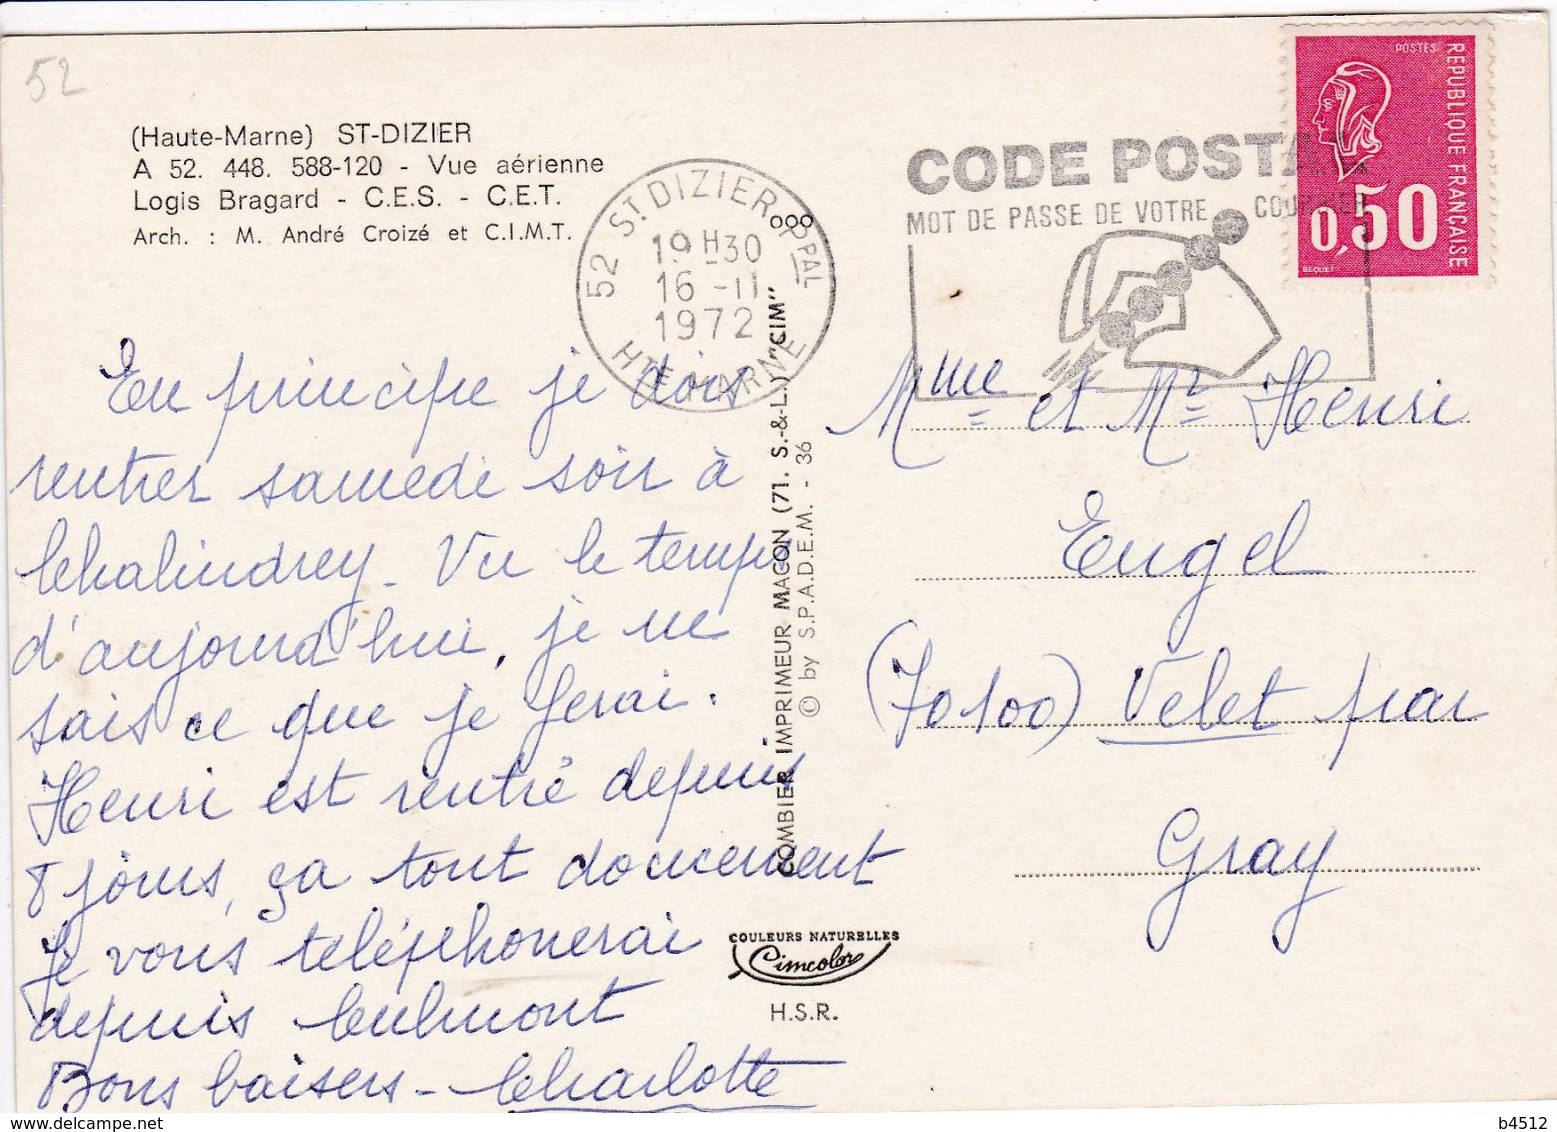 52
(Haute-Marne) ST-DIZIER
A 52. 448. 588-120 - Vue aérienne
Logis Bragard - C.E.S. - C.E.T.
Arch. : M. André Croizé et C.I.M.T.
52 ST. DIZIER PPAL
19H30
16 -11
1972
HTE MARNE
CODE POSTAL
MOT DE PASSE DE VOTRE COURRIER
POSTES
REPUBLIQUE FRANÇAISE
0,50
BEQUET
En principe je dois
rentrer samedi soir à
Chalindrey - Vu le temps
d'aujourd'hui, je ne
sais ce que je ferai.
Henri est rentré depuis
8 jours, ça tout doucement
Je vous téléphonerai
depuis Culmont
Bons baisers - Charlotte
COMBIER IMPRIMEUR MACON (71. S.-&-L.) "CIM"
© by S.P.A.D.E.M. - 36
COULEURS NATURELLES
Cimcolor
H.S.R.
Mme et Mr Henri
Engel
(70100) Velet par
Gray
delcampe.net
b4512